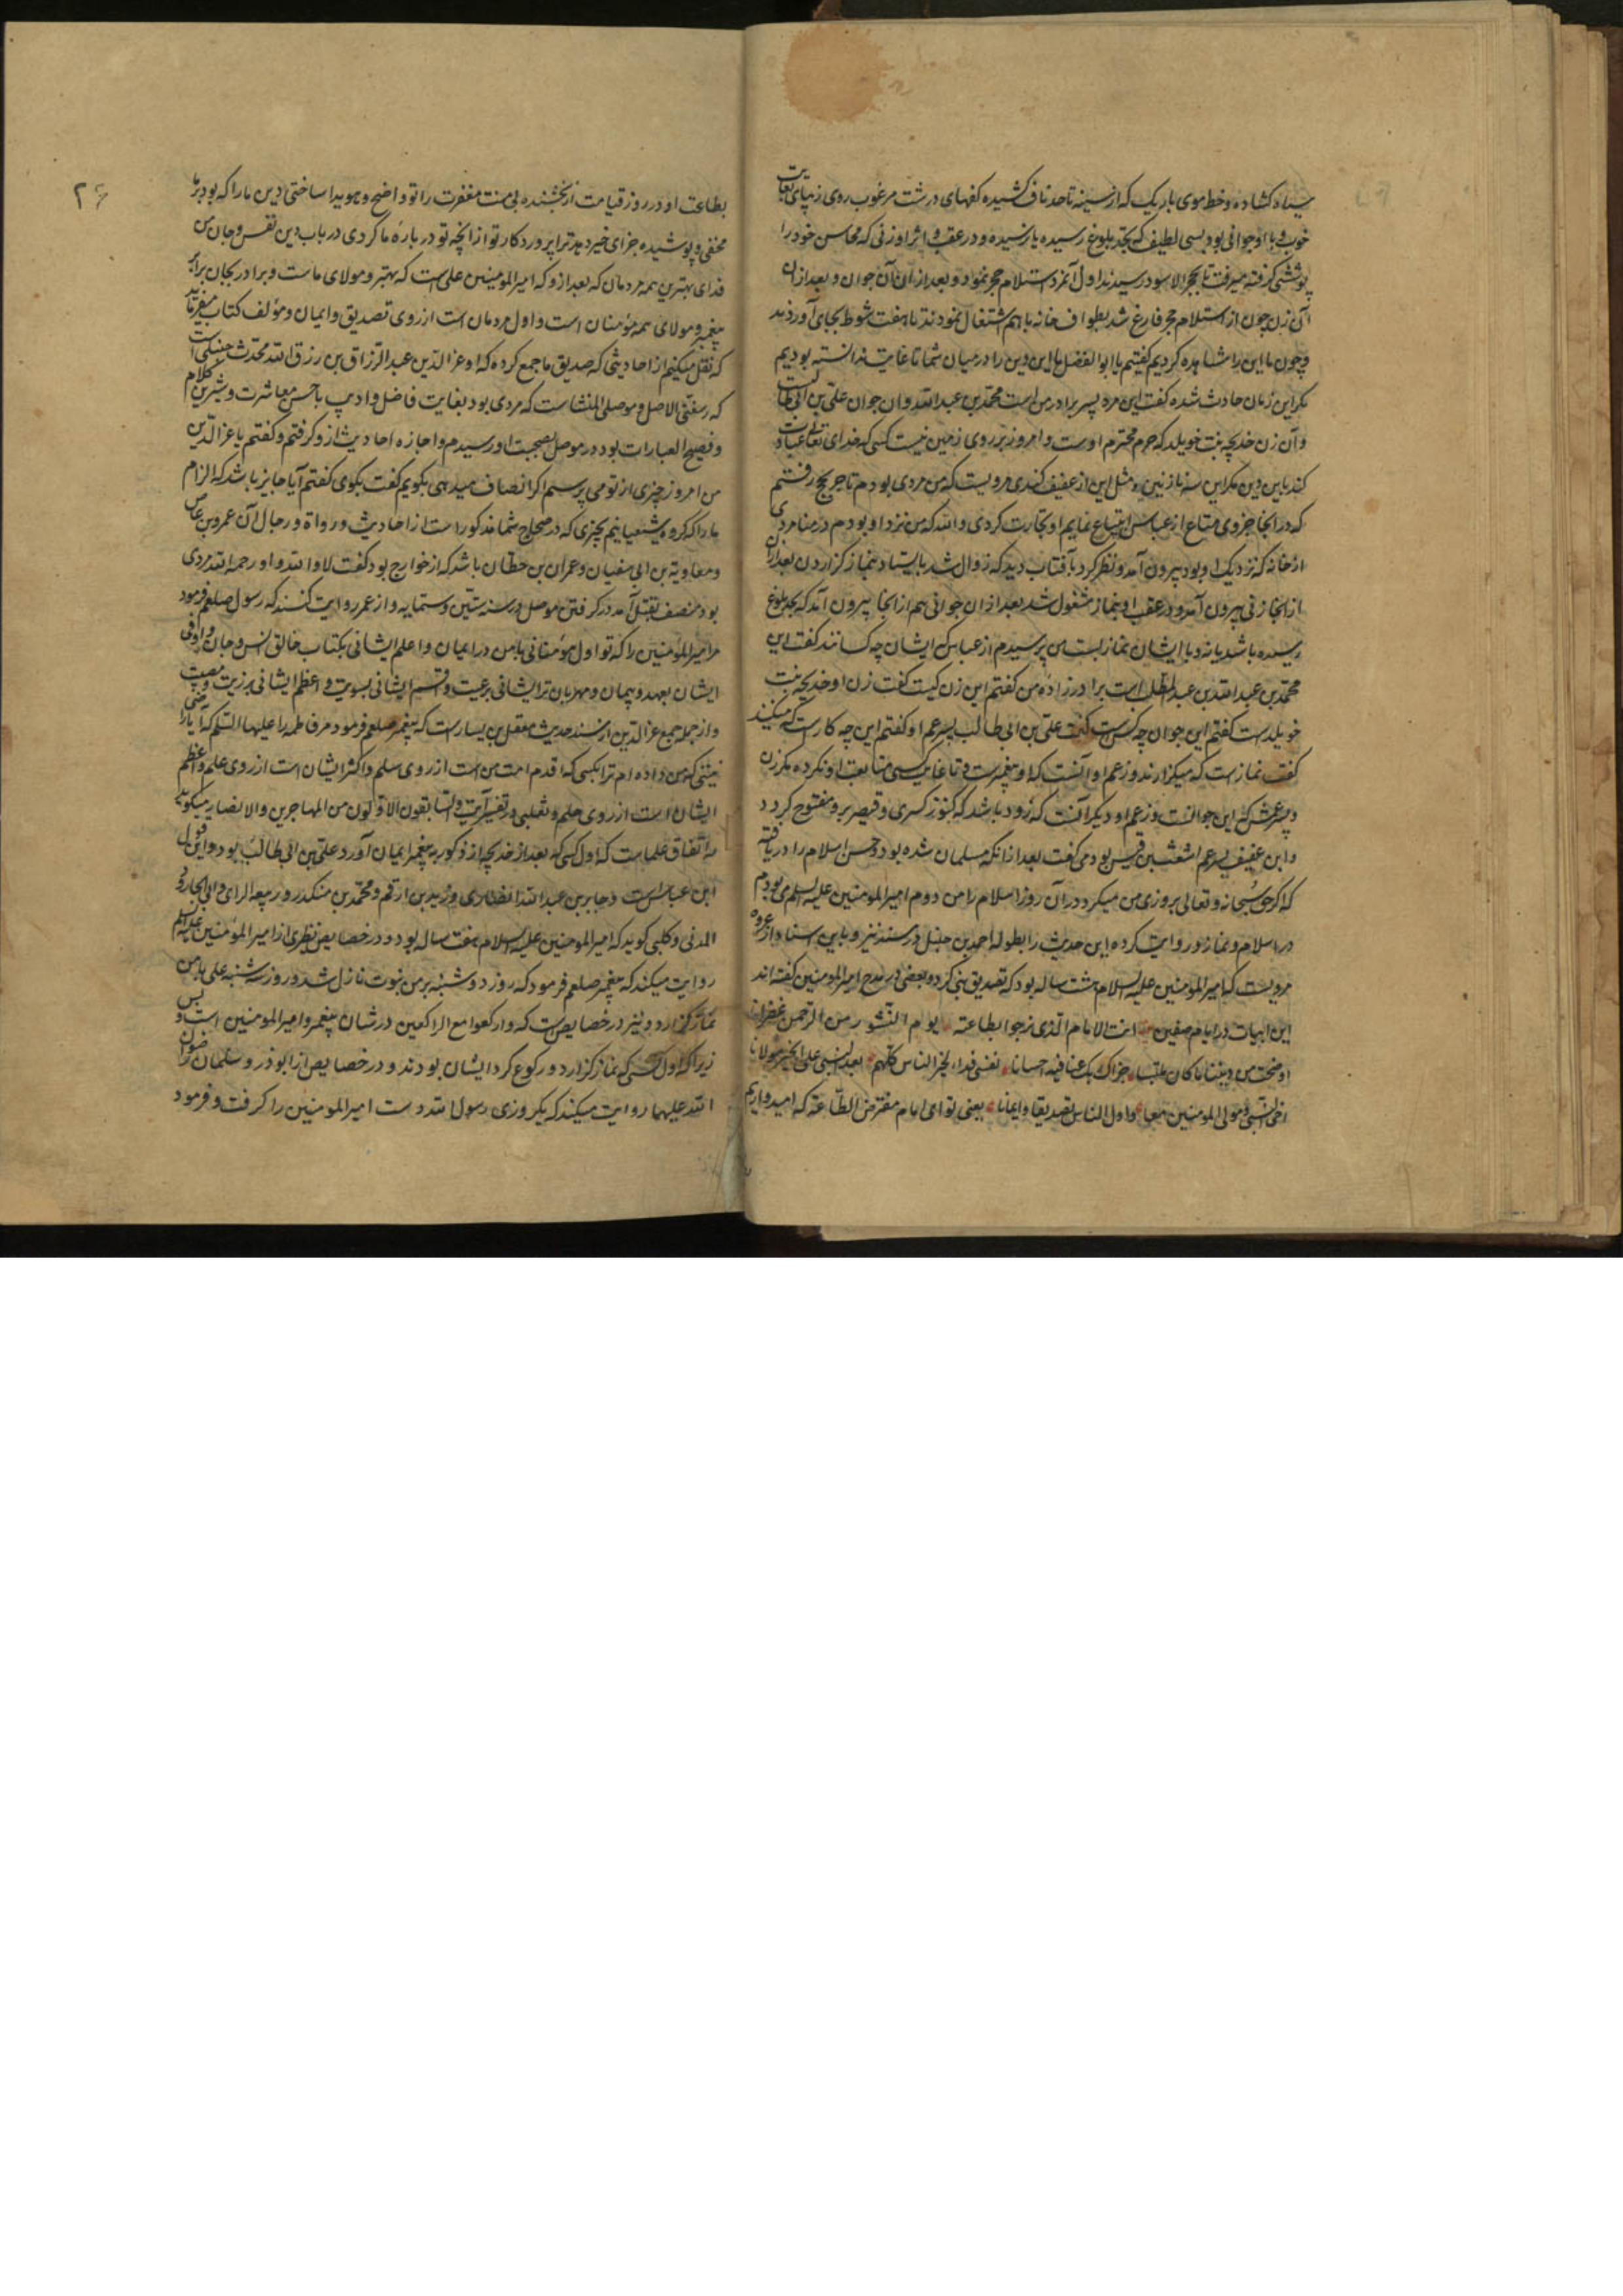 سیاه کشاده و خط موی باریک که از سینه تا حد ناف کشیده کفهای درشت مرغوب روی زیبای بغایت
خوب و با او جوانی بود بسی لطیف که بحد بلوغ رسیده یا نرسیده و در عقب و اثر او زنی که محاسن خود را
پوششی کرفته میرفت تا بحجر الاسود رسیدند اول آنمرد استلام حجر نمود و بعد از ان آن جوان و بعد از ان
آن زن چون از استلام حجر فارغ شد بطواف خانه با هم اشتغال نمودند تا هفت شوط بجای آوردند
و چون ما این را مشاهده کردیم کفتیم یا ابو الفضل ما این دین را در میان شما تا غایت ندانسته بودیم
مکر این زمان حادث شده کفت این مرد پسر برادر من است محمد بن عبد الله و ان جوان علی بن ابی طالب
و آن زن خدیجه بنت خویلد که حرم محترم اوست و امروز بر روی زمین نیست کسی که خدای تعالی را عبادت
کند باین دین مکر این سه نازنین و مثل این از عفیف کندی مرویست که من مردی بودم تاجر بحج رفتم
که در آنجا جزوی متاع از عباس ابتیاع نمایم او تجارت کردی و الله که من نزد او بودم در منا مردی
از خانه که نزدیک او بود بیرون آمد و نظر کرد بآفتاب دید که زوال شد بایستاد بنماز کزاردن بعد از ان
از آنجا زنی بیرون آمد و در عقب او بنماز مشغول شد بعد از ان جوانی هم از آنجا بیرون آمد که بحد بلوغ
رسیده باشد یا نه و با ایشان بنماز بایستاد من پرسیدم از عباس که ایشان چه کسانند کفت این
محمد بن عبد الله بن عبد المطلب است برادر زاده من کفتم این زن کیست کفت زن او خدیجه بنت
خویلد است کفتم این جوان چه کس است کفت علی بن ابی طالب پسر عم او کفتم این چه کار است که میکنند
کفت نماز است که میکزارند و زعم او آنست که او پیغمبر است و تا غایت کسی متابعت او نکرده مکر زن
و پسر عمش که این جوانست و زعم او دیکر آنست که زود باشد که کنوز کسری و قیصر بر او مفتوح کردد
و این عفیف پسر عم اشعث بن قیس بود می کفت بعد از انکه مسلمان شده بود و حسن اسلام را دریافته
که اکر حق سبحانه و تعالی بروزی من میکرد در آن روز اسلام را من دوم امیر المومنین علیه السلام می بودم
در اسلام و نماز و روایت کرده این حدیث را بطوله احمد بن حنبل در مسند نیز و باین اسناد از عروه
مرویست که امیر المومنین علیه السلام هشت ساله بود که تصدیق نبی کرده و بعضی در مدح امیر المومنین کفته اند
این ابیات در ایام صفین انت الامام الذی نرجو بطاعته یوم النشور من الرحمن غفرانا
اوضحت من دیننا ما کان ملتبسا جزاک ربک عنا فیه احسانا نفسی فداء لخیر الناس کلهم بعد النبی علی الخیر مولانا
اخی النبی و مولی المومنین معا و اول الناس تصدیقا و ایمانا یعنی تو ای امام مفترض الطاعة که امیدواریم
۲۶
بطاعت او در روز قیامت از بخشنده بی منت مغفرت را تو واضح و هویدا ساختی دین ما را که بود بر ما
مخفی و پوشیده جزای خیر دهد ترا پروردکار تو از آنچه تو در باره ما کردی در باب دین نفس و جان من
فدای بهترین همه مردمان که بعد از و که امیر المومنین علی است که بهتر و مولای ماست و برادر بجان برابر
پیغمبر و مولای همه مؤمنان است و اول مردمان است از روی تصدیق و ایمان و مؤلف کتاب میفرماید
که نقل میکنم از احادیثی که صدیق ما جمع کرده که او عز الدین عبد الرزاق بن رزق الله محدث حنبلی است
که رسعنی الاصل و موصلی المنشاست که مردی بود بغایت فاضل و ادیب با حسن معاشرت و شیرین کلام
و فصیح العبارات بود در موصل بصحبت او رسیدم و اجازه احادیث از و کرفتم و کفتم یا عز الدین
من امروز چیزی از تو می پرسم اکر انصاف میدهی بکویم کفت بکوی کفتم آیا جایز باشد که الزام
ما را که کروه شیعیانیم بچیزی که در صحاح شما مذکور است از احادیث و رواة و رجال آن عمرو بن عاص
و معاویة بن ابی سفیان و عمران بن حطان باشد که از خوارج بود کفت لا والله و او رحمه الله مردی
بود منصف بقتل آمد در کرفتن موصل در سنه ستین و ستمایه و از عمر روایت کنند که رسول صلعم فرمود
مر امیر المؤمنین را که تو اول مؤمنانی با من در ایمان و اعلم ایشانی بکتاب خالق انس و جان و اوفی
ایشان بعهد و پیمان و مهربان تر ایشانی برعیت و اقسم ایشانی بسویت و اعظم ایشانی بمزیت و مصیبت
و از جمله جمع عز الدین از مسند حدیث معقل بن یسار است که پیغمبر صلعم فرمود مر فاطمه را علیها السلام که آیا راضی
نیستی که من داده ام ترا بکسی که اقدم امت من است از روی سلم و اکثر ایشان است از روی علم و اعظم
ایشان است از روی حلم و ثعلبی در تفسیر آیت و السابقون الاولون من المهاجرین و الانصار میکوید
به اتفاق علماست که اول کسی که بعد از خدیجه از ذکور به پیغمبر ایمان آورد علی بن ابی طالب بود و این قول
ابن عباس است و جابر بن عبد الله انصاری و زید بن ارقم و محمد بن منکدر و ربیعه الرای و ابی الجارود
المدنی و کلبی کوید که امیر المومنین علیه السلام هفت ساله بود و در خصایص نطنزی از امیر المؤمنین علیه السلم
روایت میکند که پیغمبر صلعم فرمود که روز دوشنبه بر من نبوت نازل شد و روز سه شنبه علی با من
نماز کزارد و نیز در خصایص است که وارکعوا مع الراکعین در شان پیغمبر و امیر المومنین است و بس
زیرا که اول کسی که نماز کزارد و رکوع کرد ایشان بودند و در خصایص از ابوذر و سلمان رضوان
الله علیهما روایت میکند که یکروزی رسول الله دست امیر المومنین را کرفت و فرمود